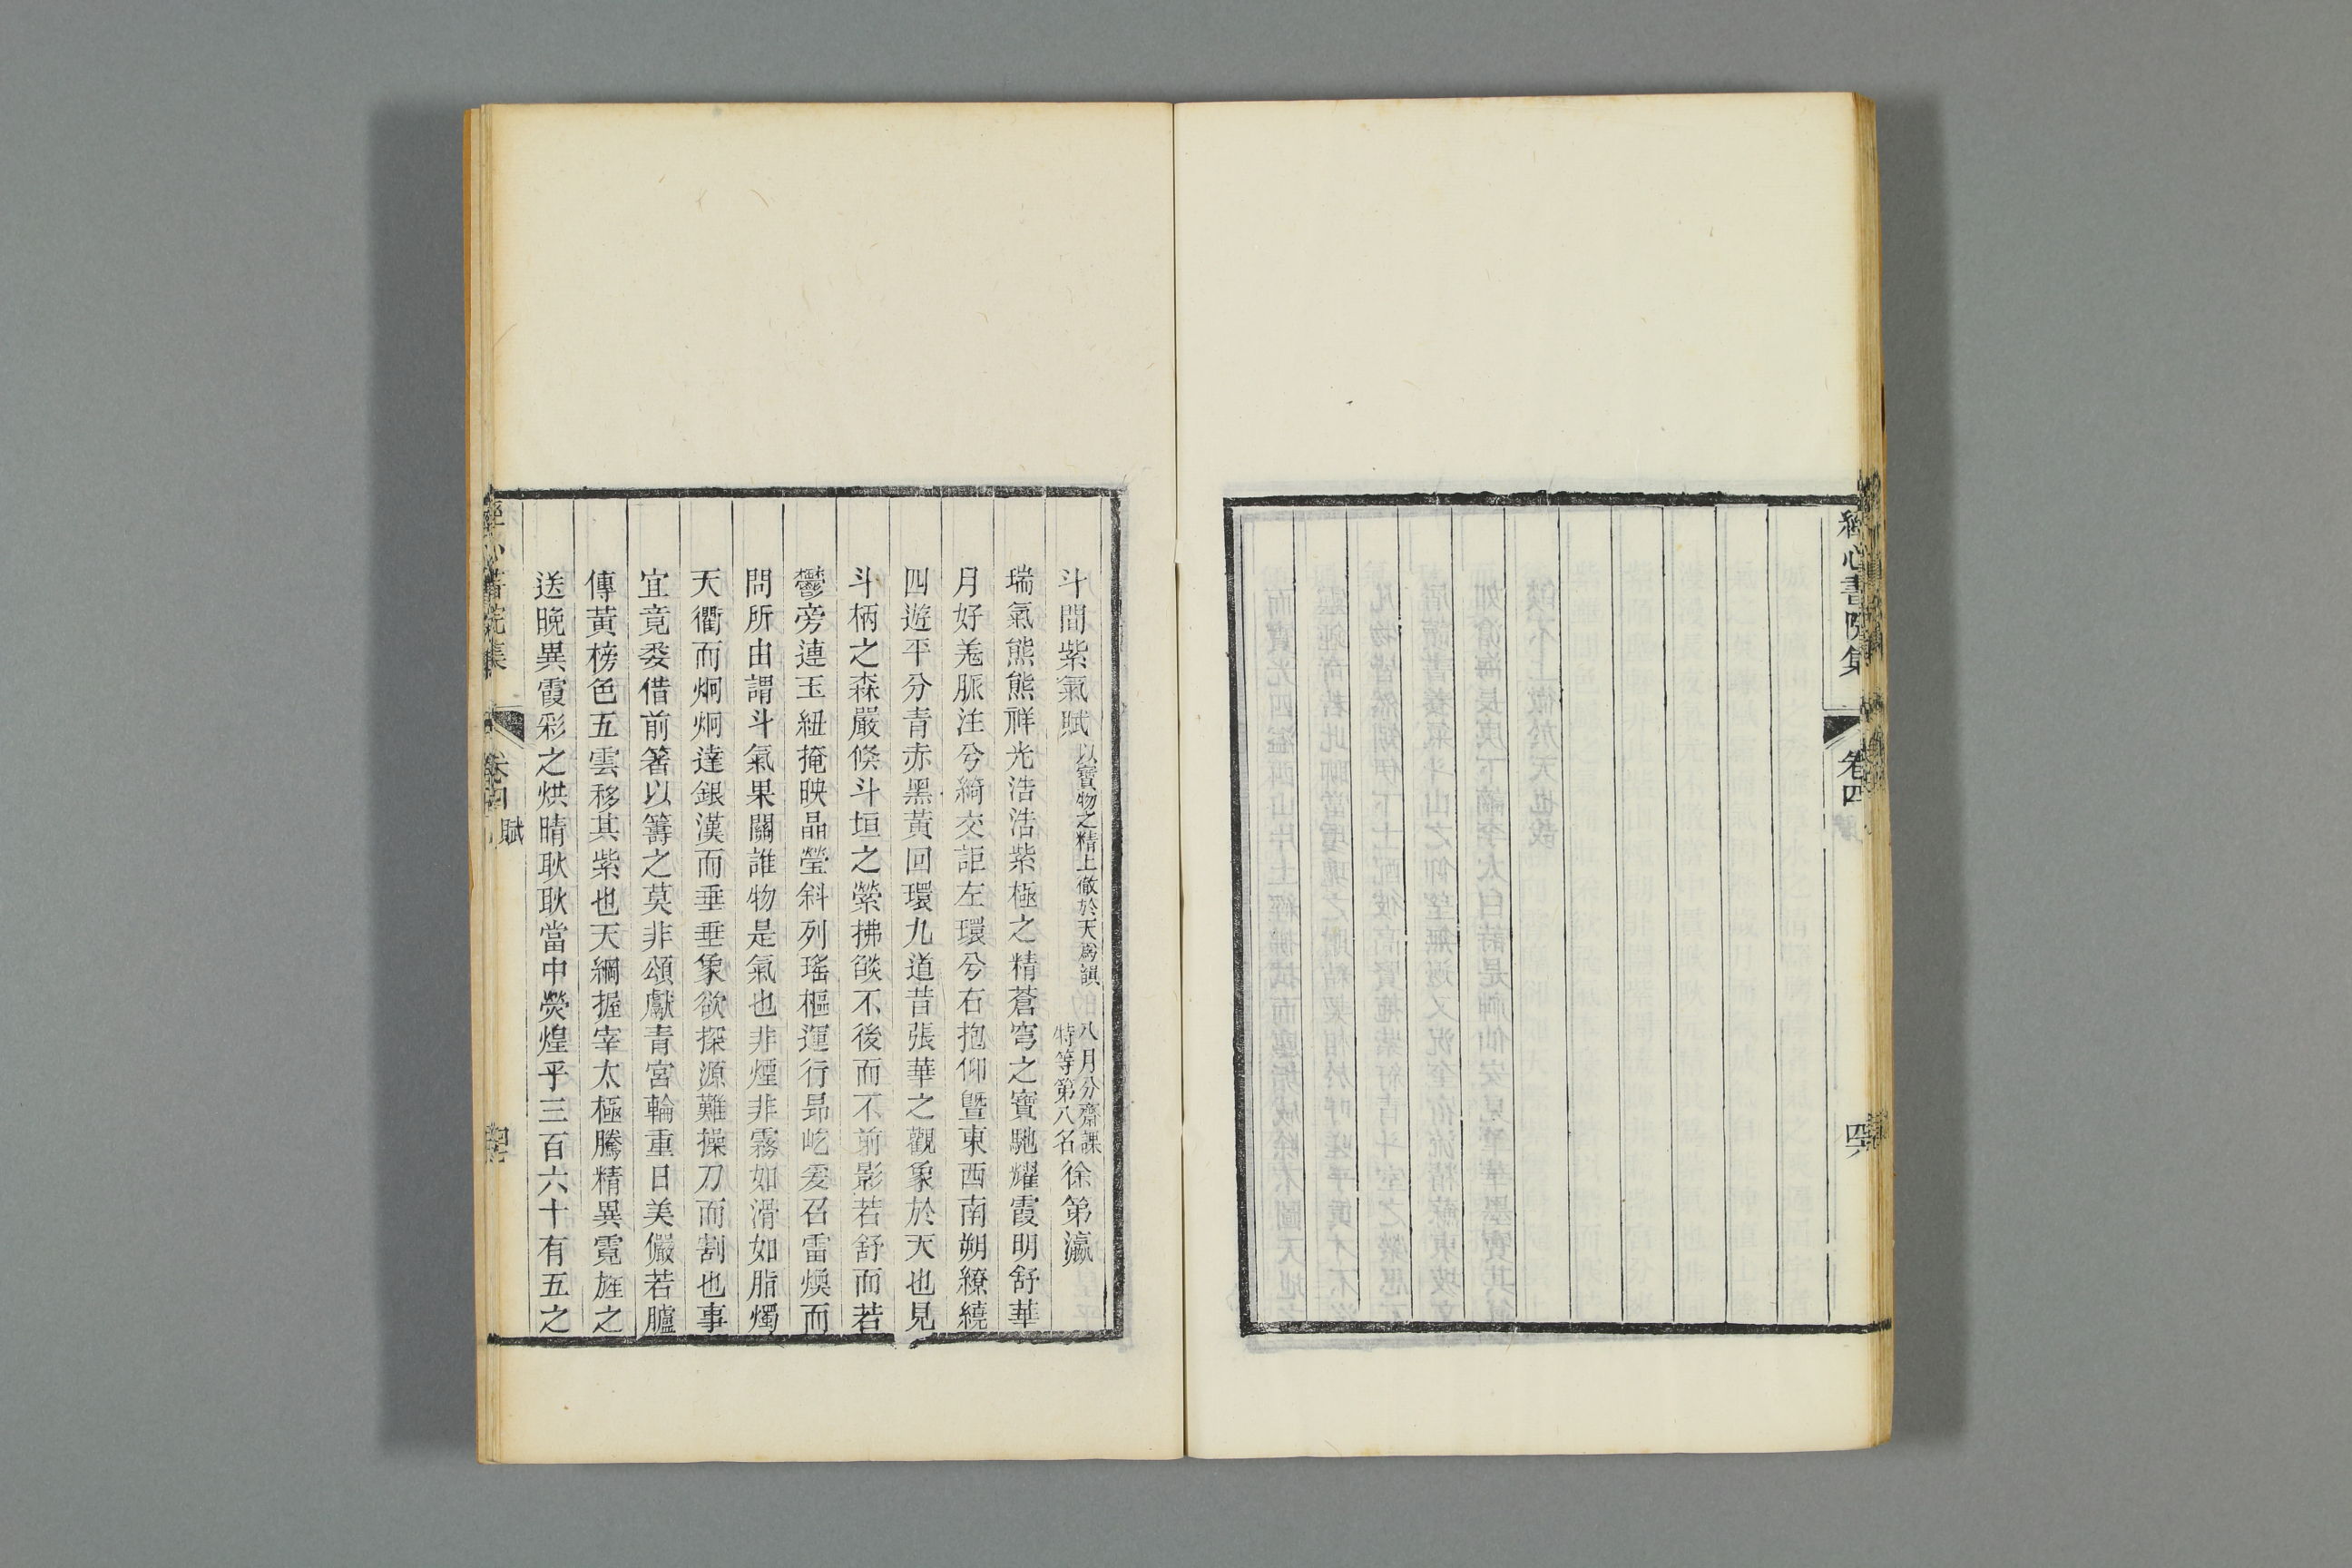 經心書院集
卷四
四六
斗間紫氣賦以寶物之精上徹於天為韻 八月分齋課特等第八名 徐第瀛
瑞氣熊熊祥光浩浩紫極之精蒼穹之寶馳耀霞明舒華
月好羗脈注兮綺交詎左環兮右抱仰曁東西南朔繚繞
四遊平分青赤黑黃回環九道昔張華之觀象於天也見
斗柄之森嚴倏斗垣之縈拂燄不後而不前影若舒而若
鬱旁連玉紐掩映晶瑩斜列瑤樞運行昻屹爰召雷煥而
問所由謂斗氣果關誰物是氣也非煙非霧如滑如脂燭
天衢而炯炯達銀漢而垂垂象欲探源難操刀而割也事
宜竟委借前箸以籌之莫非頌獻青宮輪重日美儼若臚
傳黃榜色五雲移其紫也天綱握宰太極騰精異霓旌之
送晚異霞彩之烘晴耿耿當中熒煌乎三百六十有五之
賦